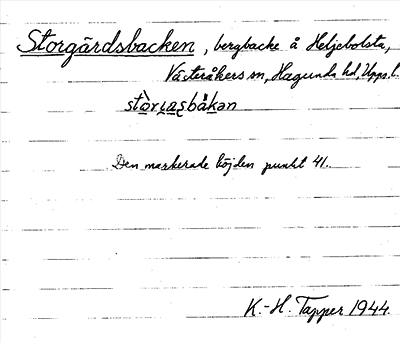 Storgårdsbacken, bergbacke å Heljebolsta,
Västeråkers sn, Hagunda hd, Upps. l.
Den markerade höjden punkt 41.
K.-H. Tapper 1944.